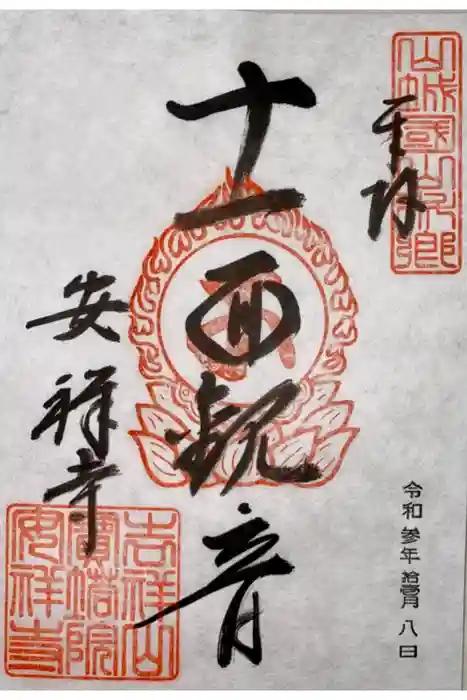 山城國山科郷
奉拝
令和参年拾壹月八日
十一面観音
安祥寺
吉祥山
寶塔院
安祥寺